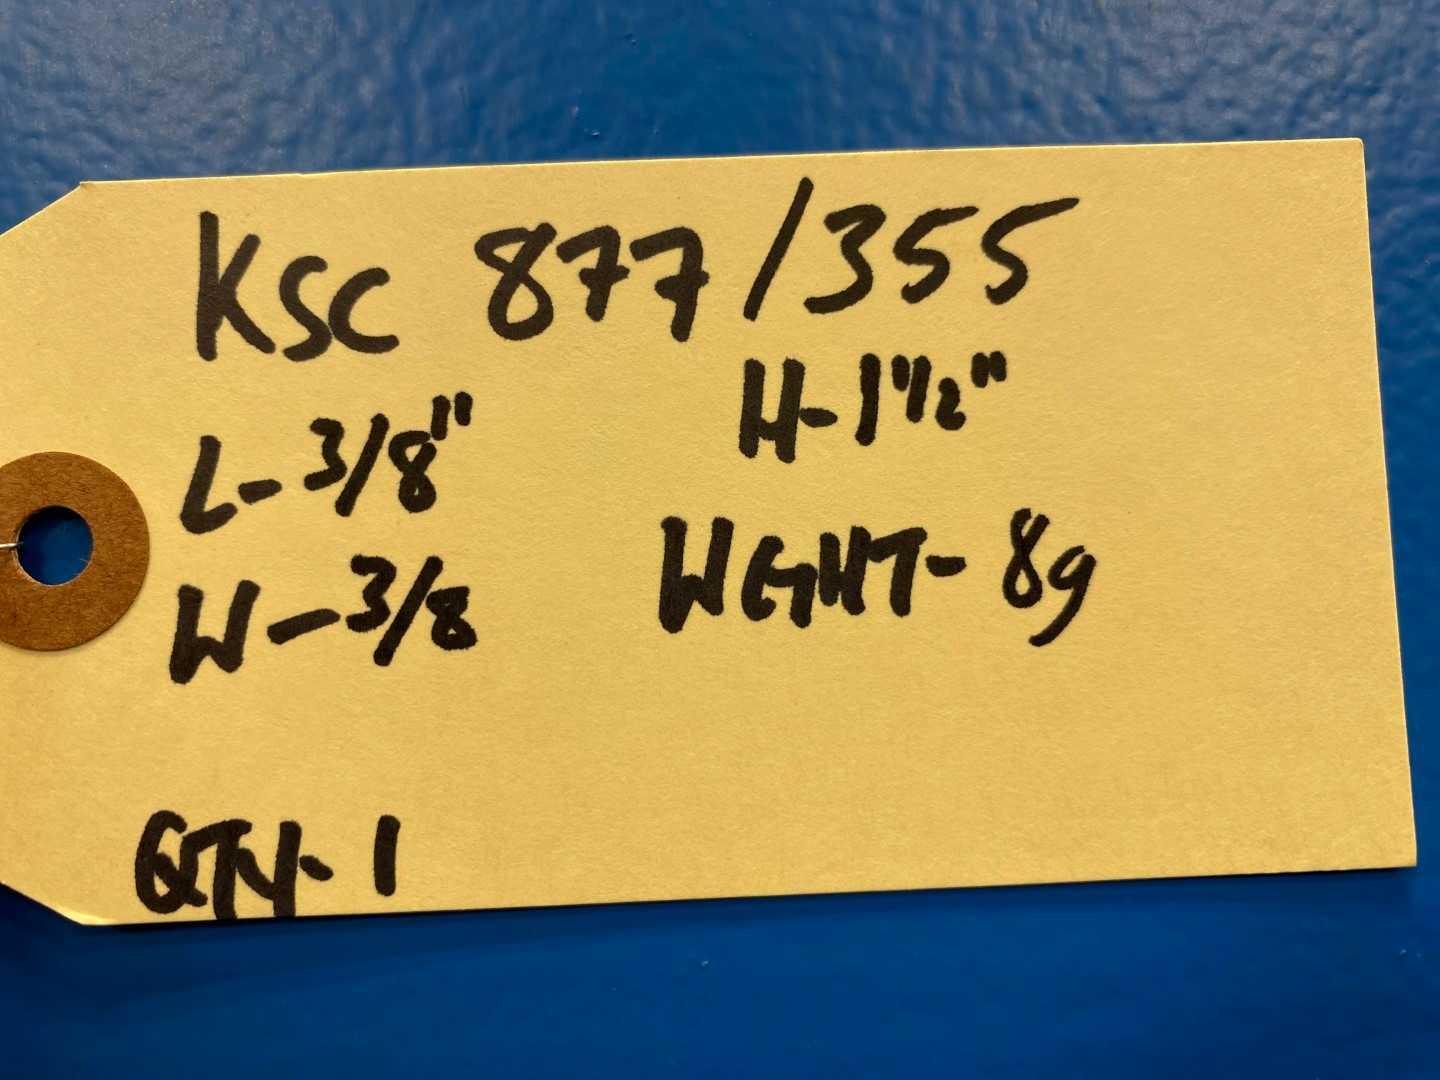 KSC 877/355
L-3/8" H-1"1/2"
W-3/8 WGHT-8g
QTY-1